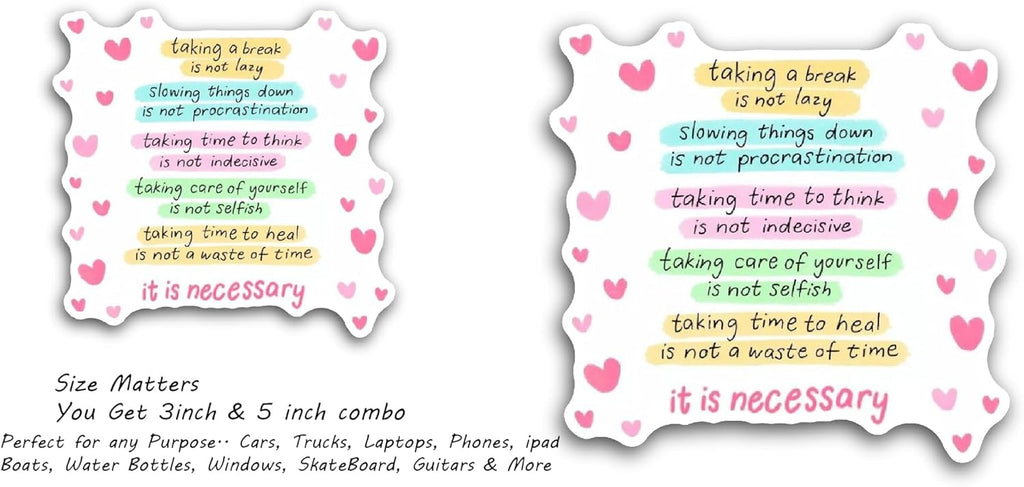 taking a break
is not lazy
slowing things down
is not procrastination
taking time to think
is not indecisive
taking care of yourself
is not selfish
taking time to heal
is not a waste of time
it is necessary
Size Matters
You Get 3inch & 5 inch combo
Perfect for any Purpose.. Cars, Trucks, Laptops, Phones, ipad
Boats, Water Bottles, Windows, SkateBoard, Guitars & More
taking a break
is not lazy
slowing things down
is not procrastination
taking time to think
is not indecisive
taking care of yourself
is not selfish
taking time to heal
is not a waste of time
it is necessary